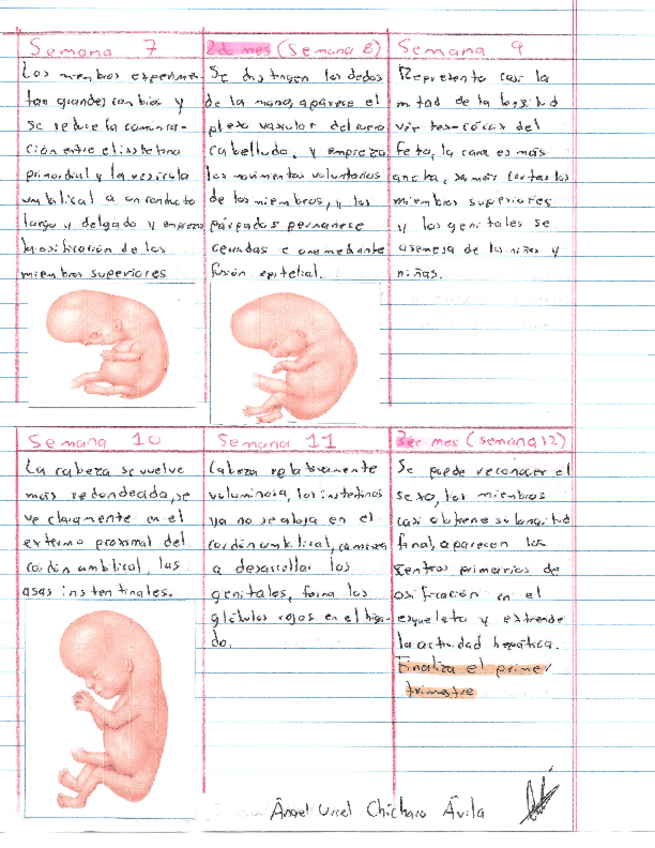 Semana 7
Los miembros experimen-
tan grandes cambios y
se reduce la comunica-
ción entre el instetino
primordial y la vesícula
umbilical a un conducto
largo y delgado y empieza
la osificación de los
miembros superiores
2do mes (Semana 8)
Se distingen los dedos
de la mano, aparese el
plexo vascular del cuero
cabelludo, y empieza
los movimentos voluntarios
de los miembros, y los
párpados permanece
cerradas e unemediante
fusión epitelial.
Semana 9
Representa casi la
mitad de la longitud
vértex-cóccix del
feto, la cara es más
ancha, son más cortas los
miembros superiores
y los genitales se
asemeja de los niños y
niñas.
Semana 10
La cabeza se vuelve
más redondeada, se
ve claramente en el
extermo proximal del
cordón umbilical, las
asas instentinales.
Semana 11
Cabeza relativamente
voluminosa, los instedinos
ya no se aloja en el
cordón umbilical, comieza
a desarrollar los
genitales, forma los
glóbulos rojos en el higa-
do.
3er mes (semana 12)
Se puede reconocer el
sexo, los miembros
casi obtiene su longitud
final, aparecen los
centros primarios de
osificación en el
esqueleto y extrende
la actividad hepática.
Finaliza el primer
trimestre
Ángel Uriel Chicharo Ávila